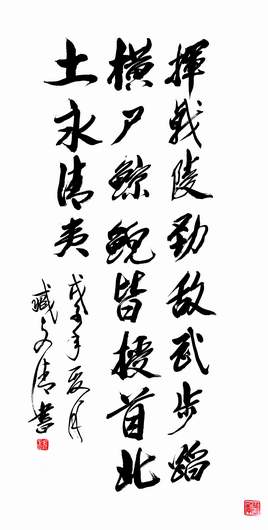 揮戟陵劲敌武步蹈
橫尸鯨鯢皆授首北
土永清夷
戊子年夏月
臧文清書